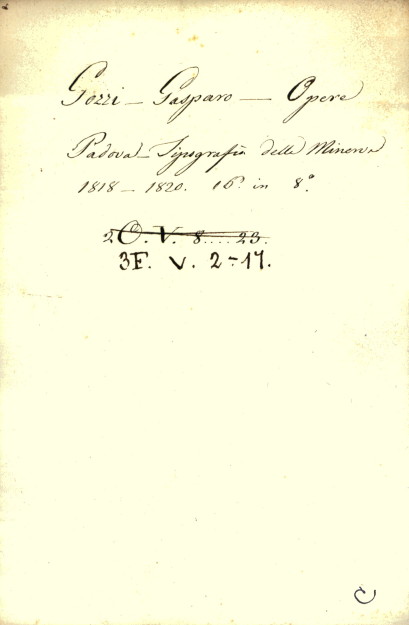 Gozzi - Gasparo - Opere
Padova - Tipografia della Minerva
1818 - 1820. 16. in 8°.
2 O. V. 8.... 23.
3F. V. 2-17.
C